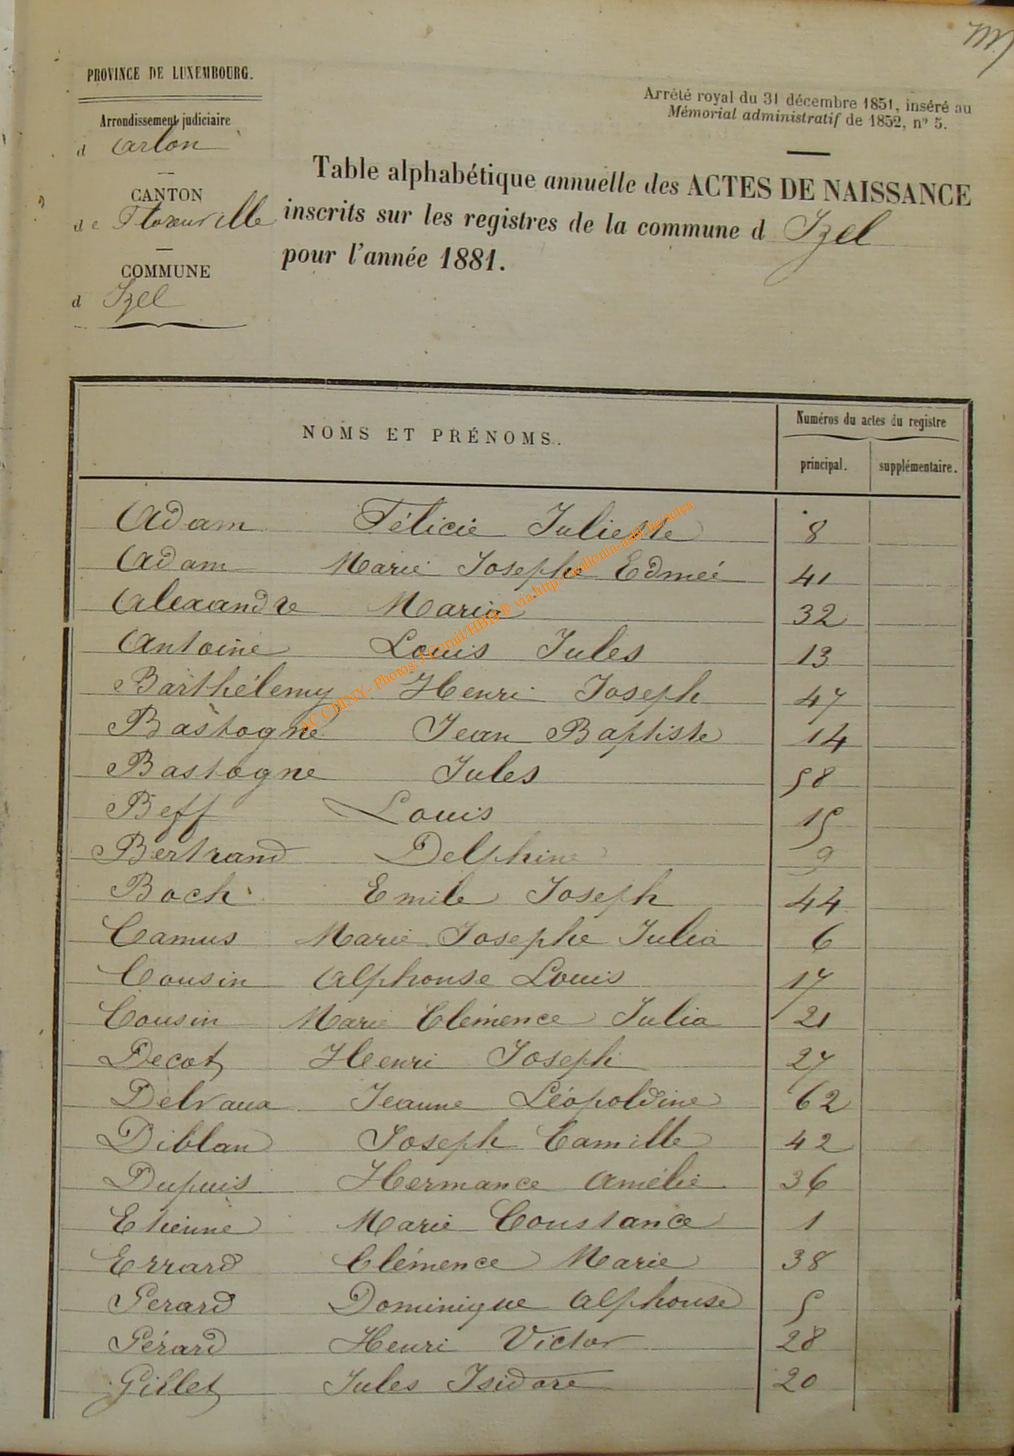 PROVINCE DE LUXEMBOURG.
Arrondissement judiciaire
d Arlon
CANTON
de Florenville
COMMUNE
d Izel
Arrêté royal du 31 décembre 1851, inséré au
Mémorial administratif de 1852, nº 5.
Table alphabétique annuelle des ACTES DE NAISSANCE
inscrits sur les registres de la commune d Izel
pour l'année 1881.
NOMS ET PRÉNOMS.
Numéros du actes du registre
principal. supplémentaire.
Adam Félicie Juliette 8
Adam Marie Josephe Edmée 41
Alexandre Maria 32
Antoine Louis Jules 13
Barthélemy Henri Joseph 47
Bastogne Jean Baptiste 14
Bastogne Jules 58
Beff Louis 15
Bertrand Delphine 9
Boch Emile Joseph 44
Camus Marie Josephe Julia 6
Cousin Alphonse Louis 17
Cousin Marie Clémence Julia 21
Decot Henri Joseph 27
Delvaux Jeanne Léopoldine 62
Diblan Joseph Camille 42
Dupuis Hermance Amélie 36
Etienne Marie Constance 1
Errard Clémence Marie 38
Gerard Dominique Alphonse 5
Gérard Henri Victor 28
Gillet Jules Isidore 20